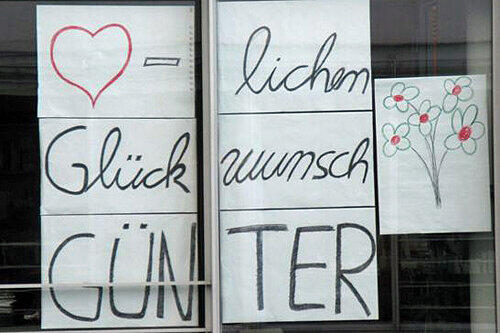 - lichen
Glückwunsch
GÜNTER